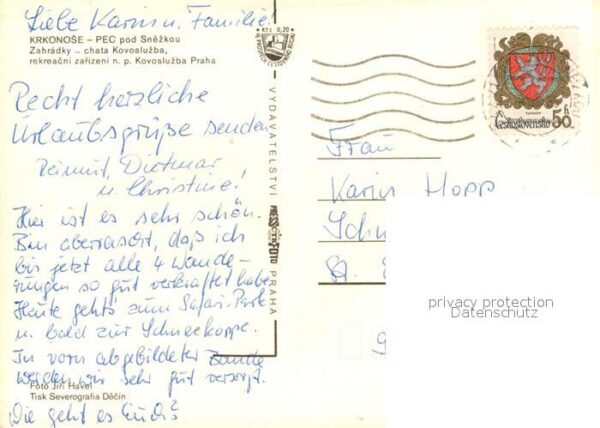 Liebe Karin u. Familie!
KRKONOŠE – PEC pod Sněžkou
Zahrádky – chata Kovoslužba,
rekreační zařízení n. p. Kovoslužba Praha
Recht herzliche
Urlaubsgrüße senden
Dietmar
u. Christine!
Hier ist es sehr schön.
Bin überrascht, daß ich
bis jetzt alle 4 Wande-
rungen so gut verkraftet habe.
Heute gehts zum Safari-Park
u. bald zur Schneekoppe.
In vorn abgebildeter Baude
werden wir sehr gut versorgt.
Foto Jiří Havel
Tisk Severografia Děčín
Wie geht es Euch?
Kčs 0,20
VYDAVATELSTVÍ
PRESSFOTO
PRAHA
50 h
Československo
Frau
Karin Hopp
Sch
St.
9
privacy protection
Datenschutz